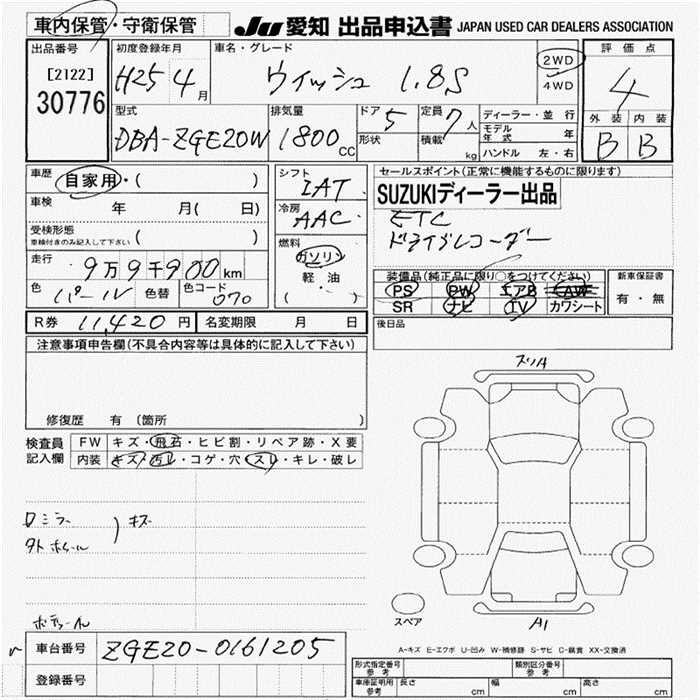 車内保管・守衛保管
JU 愛知 出品申込書 JAPAN USED CAR DEALERS ASSOCIATION
出品番号 初度登録年月 車名・グレード 評価点
[2122] H25 4月 ウィッシュ 1.8S 2WD 4
30776 4WD
型式 排気量 ドア 5 定員 7人 ディーラー・並行 外装 内装
DBA-ZGE20W 1800cc 形状 積載 kg モデル年式 年 B B
ハンドル 左・右
車歴 自家用・( ) シフト IAT セールスポイント(正常に機能するものに限ります)
車検 年 月( 日) 冷房 AAC SUZUKIディーラー出品
受検形態 ( ) ETC
車検付きのみ記入して下さい 燃料 ドライブレコーダー
走行 9万9千900km ガソリン
軽油
( )
装備品(純正品に限り○をつけてください) 新車保証書
色 パール 色替 色コード 070 PS PW エアB AW 有・無
SR ナビ TV カワシート
R券 11,420円 名変期限 月 日 後日品
注意事項申告欄(不具合内容等は具体的に記入して下さい)
修復歴 有 (箇所 )
検査員 FW キズ・飛石・ヒビ割・リペア跡・X要
記入欄 内装 キズ・汚レ・コゲ・穴・スレ・キレ・破レ
スリA
ロミラー
タトホイール ) キズ
スペア
A1
A-キズ E-エクボ U-凹み W-補修跡 S-サビ C-腐食 XX-交換済
車台番号 ZGE20-0161205
登録番号
形式指定番号 参考 類別区分番号 参考
車庫証明用 参考 長さ cm 幅 cm 高さ cm